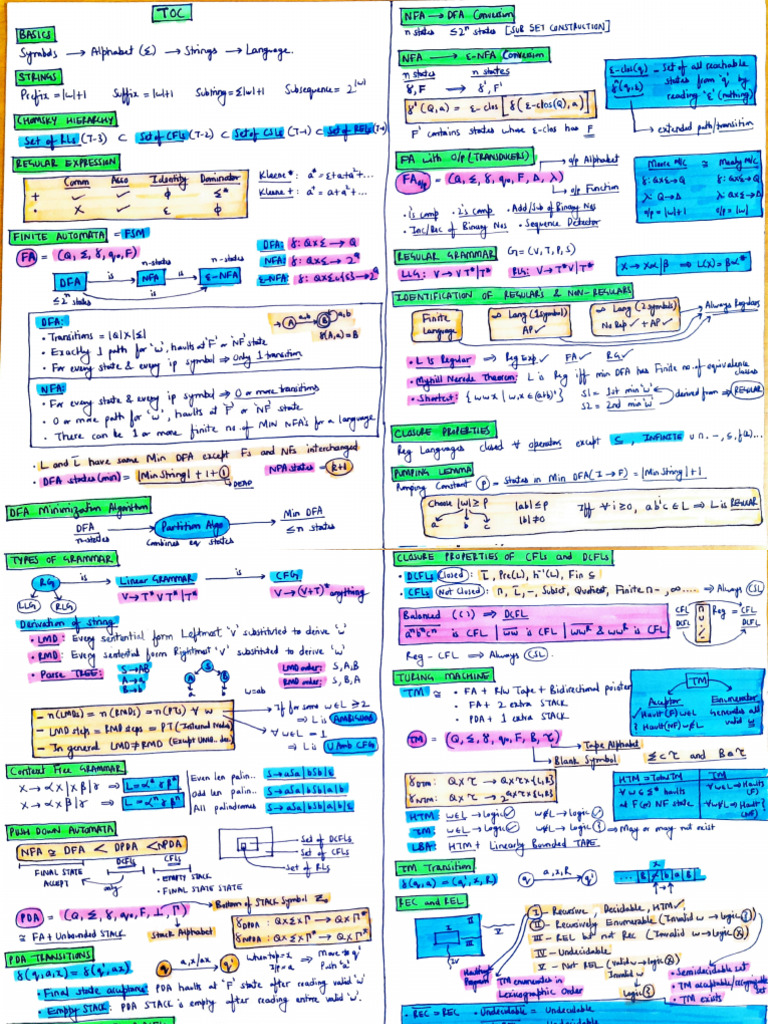 TOC
BASICS
Symbols → Alphabet (Σ) → Strings → Language.
STRINGS
Prefix = |w|+1 Suffix = |w|+1 Substring = Σ|w|+1 Subsequence = 2^|w|
CHOMSKY HIERARCHY
Set of RLs (T-3) ⊂ Set of CFLs (T-2) ⊂ Set of CSLs (T-1) ⊂ Set of RELs (T-0)
REGULAR EXPRESSION
Comm Asso Identity Dominator
+ ✓ ✓ ϕ Σ*
· X ✓ ε ϕ
Kleene*: a* = ε+a+a²+...
Kleene+: a⁺ = a+a²+...
FINITE AUTOMATA = FSM
FA = (Q, Σ, δ, q₀, F)
n-states n-states
DFA is NFA is ε-NFA
≤2ⁿ states is
DFA: δ: Q×Σ → Q
NFA: δ: Q×Σ → 2^Q
ε-NFA: δ: Q×Σ∪{ε} → 2^Q
DFA:
• Transitions = |Q|×|Σ|
• Exactly 1 path for 'w', haults at 'F' or 'NF' state
• For every state & every ip symbol → Only 1 transition
A a,b B a,b
δ(A,a) = B
NFA:
• For every state & every ip symbol → 0 or more transitions
• 0 or more path for 'w', haults at 'F' or 'NF' state
• There can be 1 or more finite no. of MIN NFA's for a language
• L and L̄ have same Min DFA except Fs and NFs interchanged
• DFA states (min) = |Min String|+1+1 NFA states = k+1
DEAD
DFA Minimization Algorithm
DFA → Partition Algo → Min DFA
n-states Combines eq states ≤n states
NFA → DFA Conversion
n states ≤2ⁿ states [SUB SET CONSTRUCTION]
NFA → ε-NFA Conversion
n states n states
δ, F δ', F'
δ'(Q,a) = ε-clos[δ(ε-clos(Q),a)]
F' contains states whose ε-clos has F
ε-clos(q) – Set of all reachable
states from 'q' by
reading 'ε' (nothing)
extended path/transition
FA with O/P (TRANSDUCERS)
o/p Alphabet
FA o/p = (Q, Σ, δ, q₀, F, Δ, λ)
o/p Function
• 1's comp • 2's comp • Add/Sub of Binary Nos
• Inc/Dec of Binary Nos • Sequence Detector
Moore M/C ≅ Mealy M/C
δ: Q×Σ→Q δ: Q×Σ→Q
λ: Q→Δ λ: Q×Σ→Δ
o/p = |w|+1 o/p = |w|
REGULAR GRAMMAR G = (V, T, P, S)
LLG: V→VT*|T* RLG: V→T*V|T*
X→Xα|β ⇒ L(X) = βα*
IDENTIFICATION OF REGULAR'S & NON-REGULARS
Finite
Language
∞ Lang (1 symbol)
AP✓
∞ Lang (2 symbols)
No Rep ✓ + AP✓
Always Regulars
• L is Regular → Reg Exp✓ FA✓ RG✓
• Myhill Nerode Theorem: L is Reg iff min DFA has Finite no. of equivalence
classes
S1 = 1st min 'w'
S2 = 2nd min 'w'
derived from → REGULAR
CLOSURE PROPERTIES
PUMPING LEMMA
Pumping Constant (p) = States in Min DFA (I→F) = |Min String|+1
Choose |w| ≥ P
a b c
|ab| ≤ p
|b| ≠ 0
Iff ∀ i≥0, abⁱc ∈ L ⇒ L is REGULAR
TYPES OF GRAMMAR
RG is Linear GRAMMAR is CFG
LLG RLG V→T*VT*|T* V→(V+T)* anything
Derivation of string
• LMD: Every sentential form Leftmost 'V' substituted to derive 'w'
• RMD: Every sentential form Rightmost 'V' substituted to derive 'w'
• Parse TREE: S→AB
A→a
B→b
S
A B
a b
w=ab
LMD order: S, A, B
RMD order: S, B, A
– n(LMDs) = n(RMDs) = n(PTs) ∀ w
– LMD steps = RMD steps = PT (Internal Nodes)
– In general LMD ≠ RMD
If for some w∈L ≥2
→ L is AMBIGUOUS
∀ w∈L = 1
→ L is UAMB CFG
Context Free GRAMMAR
Even len palin.. S→aSa|bSb|ε
Odd len palin.. S→aSa|bSb|a|b
All palindromes S→aSa|bSb|a|b|ε
PUSH DOWN AUTOMATA
NFA ≅ DFA < DPDA < NPDA
FINAL STATE
ACCEPT
DCFLs
only
CFLs
• EMPTY STACK
• FINAL STATE STATE
Set of DCFLs
Set of CFLs
Set of RLs
Bottom of STACK Symbol Z₀
PDA = (Q, Σ, δ, q₀, F, ⊥, Γ)
≅ FA + Unbounded STACK Stack Alphabet
δDPDA: Q×Σ×Γ* → Q×Γ*
PDA TRANSITIONS
δ(q, a, x) = δ(q', ax)
q a,x/ax q'
when top = x
I/p = a
⇒ Move to q'
Push 'a'
• Final state acceptance: PDA haults at 'F' state after reading valid 'w'
• Empty STACK: PDA STACK is empty after reading entire valid 'w'.
CLOSURE PROPERTIES OF CFLs and DCFLs
• DCFLs Closed: L̄, Pre(L), h⁻¹(L), Fin ⊆
→ Always CSL
Balanced ( ( ) ) ⇒ DCFL
CFL
DCFL
Reg = CFL
DCFL
Reg – CFL ⇒ Always CSL.
TURING MACHINE
TM ≅ • FA + R/w Tape + Bidirectional pointer
• FA + 2 extra STACK
• PDA + 1 extra STACK
TM
Acceptor
Hault (F) w∈L
Hault (NF) w∉L
Enumerator
Generates all
valid w
TM = (Q, Σ, δ, q₀, F, B, τ)
Tape Alphabet
Blank Symbol
Σ ⊂ τ and B ∈ τ
δDTM: Q×τ → Q×τ×{L,R}
δNTM: Q×τ → 2^Q×τ×{L,R}
HTM = Total TM
∀ w∈Σ* haults
at F (or) NF state
TM
∀ w∈L → Hault
(F)
∀ w∉L → Hault
(NF)
HTM: w∈L → logic✓ w∉L → logic✓
TM: w∈L → logic✓ w∉L → logic → May or may not exist
LBA: HTM + Linearly Bounded TAPE
TM Transition
δ(q, a) = (q', x, R)
q a,x,R q'
x
... B a b a B
REC and REL
I – Recursive, Decidable, HTM✓
II – Recursively Enumerable (Invalid w → logic)
III – REL but not Rec (Invalid w → logic X)
IV – Undecidable
V – Not REL (Valid w → logic X)
Invalid w
logic
Haulting
Program
TM enumerates in
Lexicographic Order
• Semidecidable set
• TM acceptable/recognizable
set
• TM exists